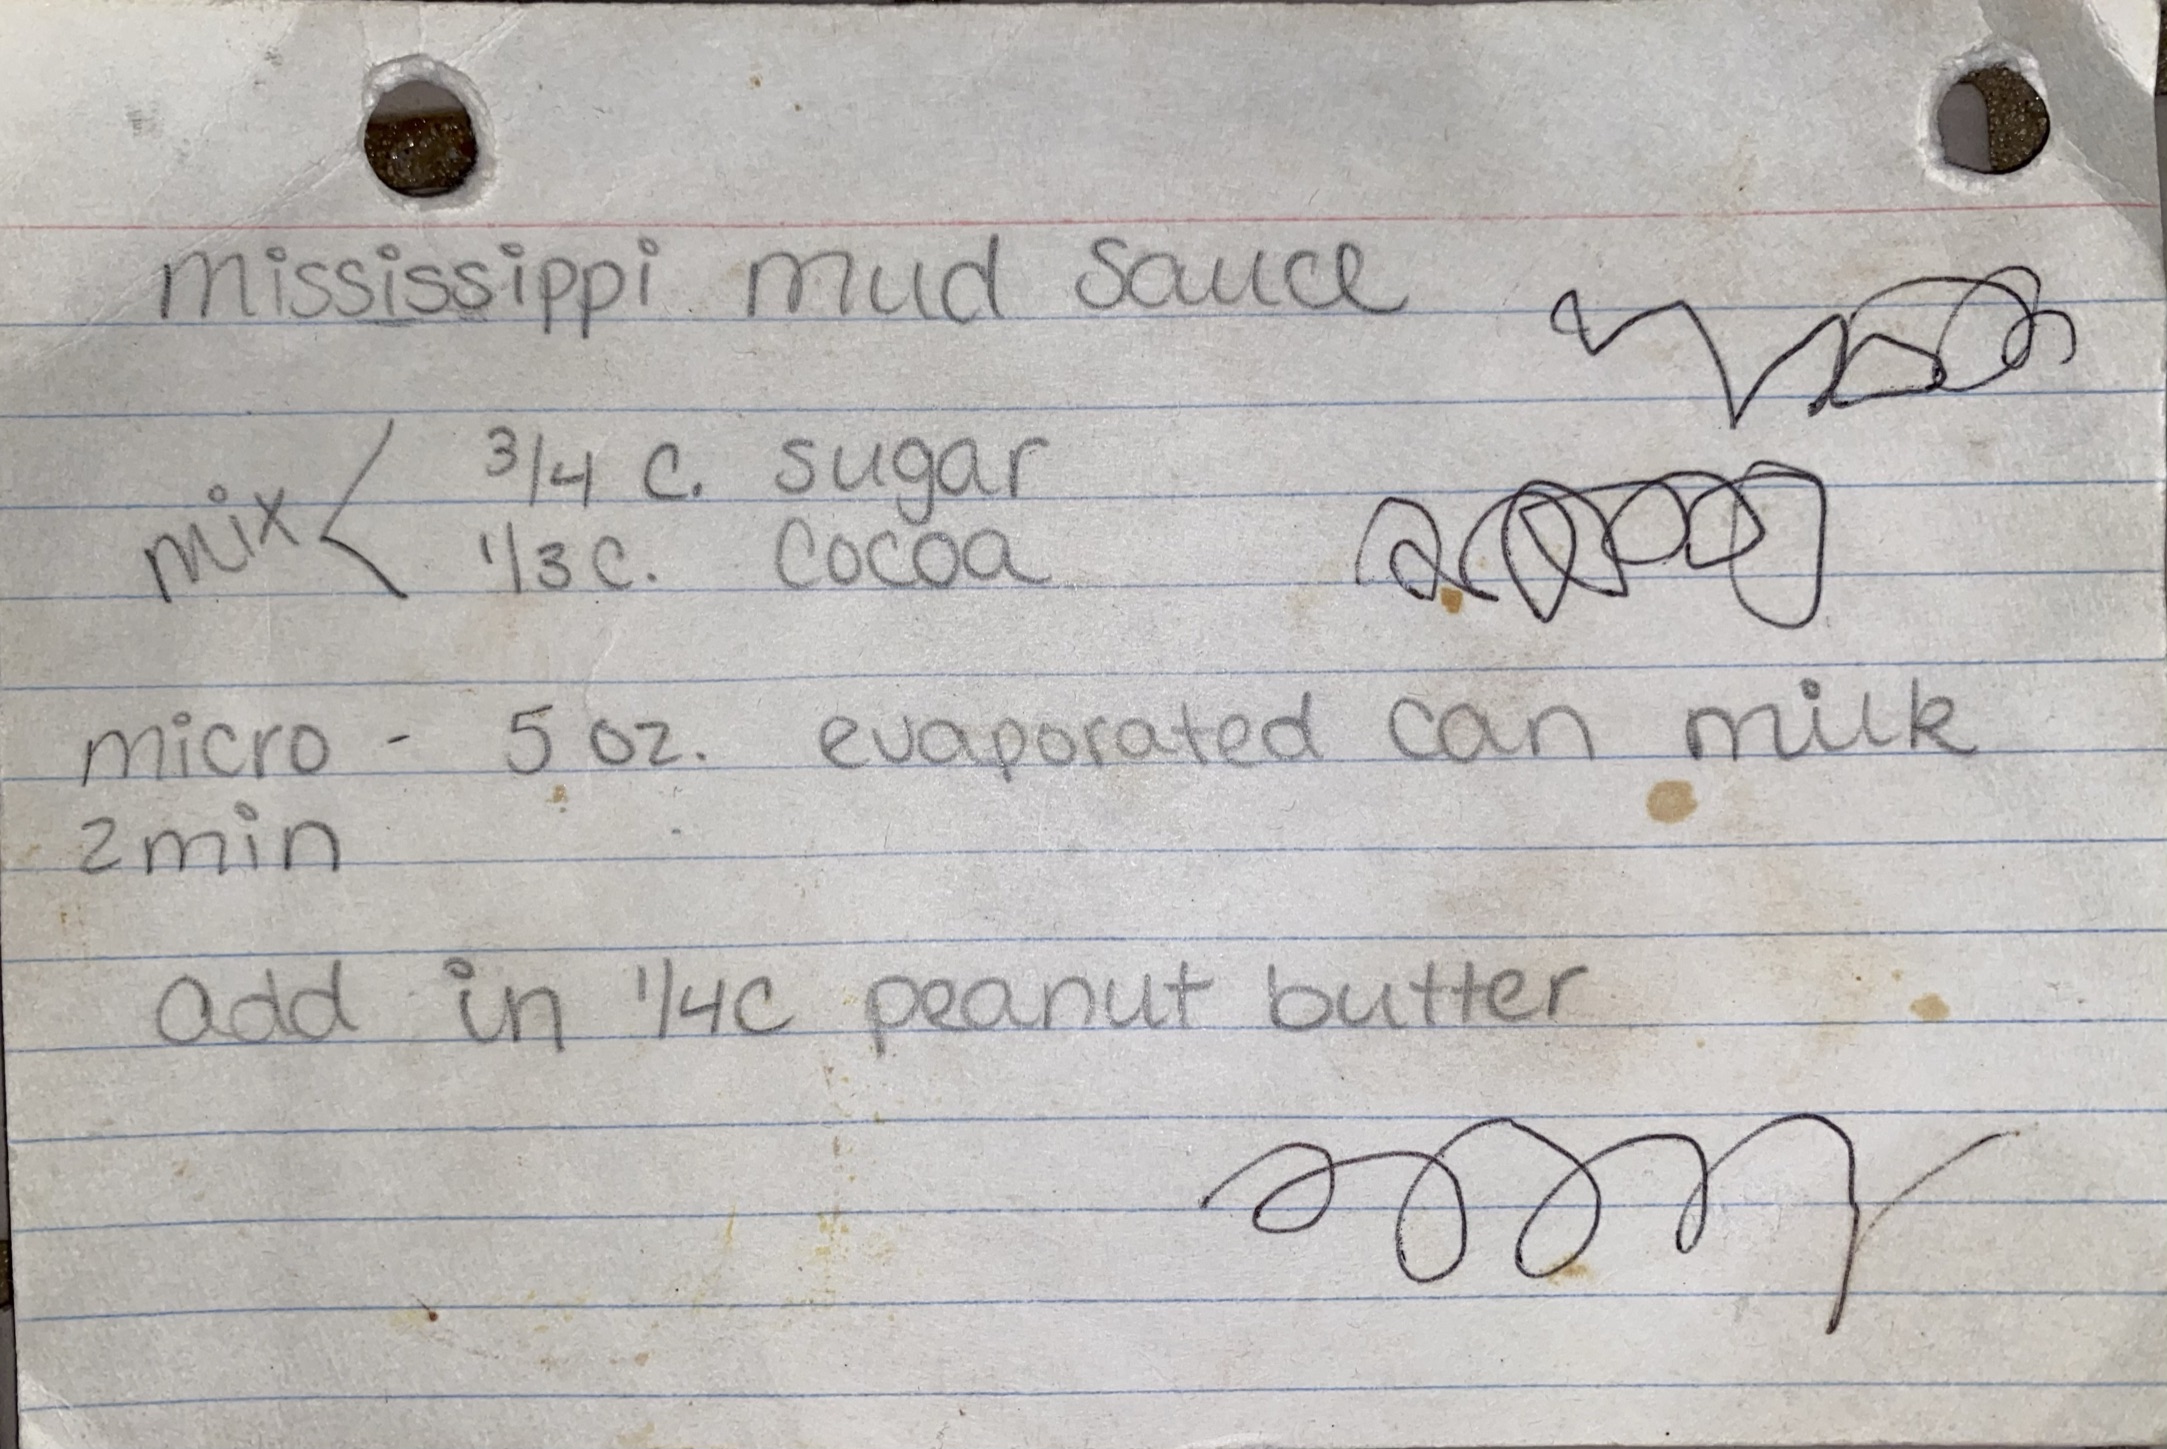 mississippi mud sauce
mix < 3/4 c. sugar
1/3 c. cocoa
micro - 5 oz. evaporated can milk
2 min
add in 1/4 c peanut butter